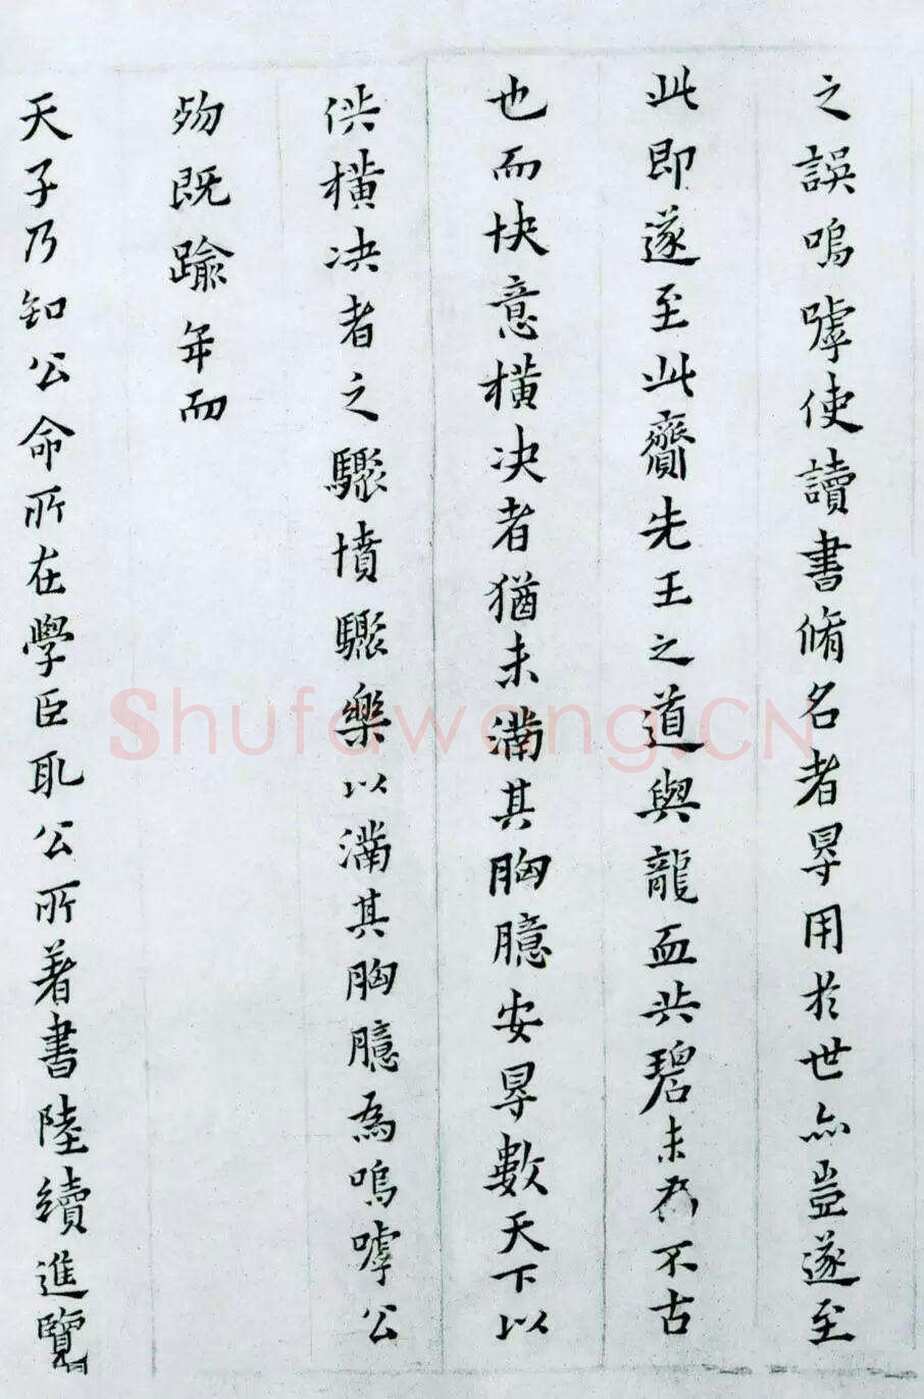 之誤嗚嘑使讀書脩名者㝵用於世亦豈遂至
此即遂至此齎先王之道與龍血共碧未為不古
也而快意橫决者猶未滿其胸臆安㝵數天下以
供橫决者之驟墳驟樂以滿其胸臆為嗚嘑公
歾既踰年而
天子乃知公命所在學臣取公所著書陸續進覽
Shufawang.CN